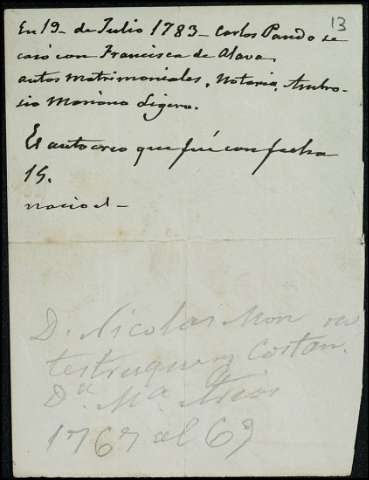 13
En 19 de Julio 1783 - Carlos Pando se
casó con Francisca de Alava,
autos matrimoniales, Notario, Ambro-
sio Mariano Ligero.
El auto creo que fué con fecha
15.
nació el -
D. Nicolas Mon
y
Dª Mª
1767 al 69